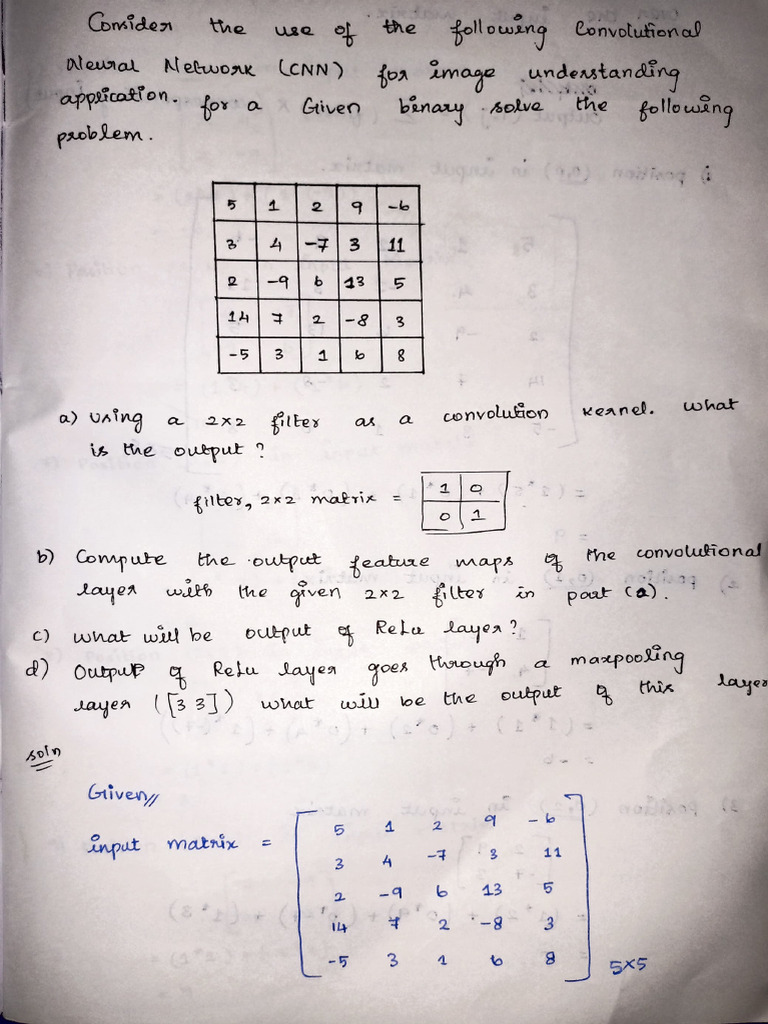 Consider the use of the following Convolutional
Neural Network (CNN) for image understanding
application. for a Given binary solve the following
problem.
5 1 2 9 -6
3 4 -7 3 11
2 -9 6 13 5
14 7 2 -8 3
-5 3 1 6 8
a) Using a 2x2 filter as a convolution kernel. what
is the output ?
filter, 2x2 matrix = 1 0
0 1
b) Compute the output feature maps of the convolutional
layer with the given 2x2 filter in part (a).
c) what will be output of ReLu layer?
d) Output of ReLu layer goes through a maxpooling
layer ([3 3]) what will be the output of this layer
soln
Given//
input matrix = 5 1 2 9 -6
3 4 -7 3 11
2 -9 6 13 5
14 7 2 -8 3
-5 3 1 6 8
5x5